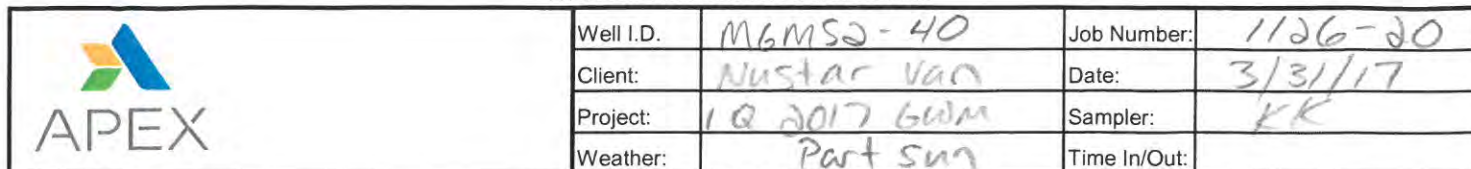 Well I.D. MGMS2-40 Job Number: 1126-20
Client: Nustar Van Date: 3/31/17
APEX
Project: 1Q 2017 GWM Sampler: KK
Weather: Part sun Time In/Out: